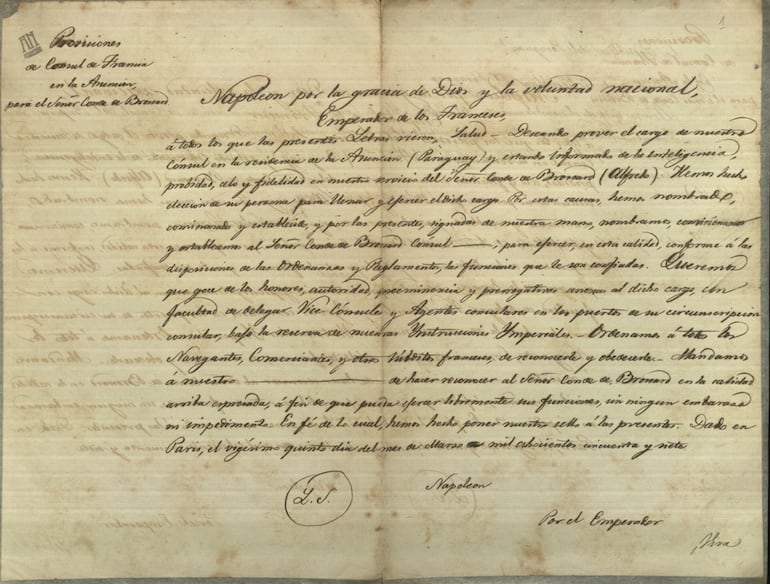 1
Provisiones
de Consul de Francia
en la Asuncion,
para el Señor Conde de Brossard
Napoleon por la gracia de Dios y la voluntad nacional,
Emperador de los Franceses,
á todos los que las presentes Letras vieren, Salud – Deseando prover el cargo de nuestro
Cónsul en la residencia de la Asuncion (Paraguay) y estando informado de la inteligencia,
probidad, celo y fidelidad en nuestro servicio del Señor Conde de Brossard (Alfredo) Hemos hecho
eleccion de su persona para llenar y ejercer el dicho cargo Por estas causas, hemos nombrado,
comisionado y establecido, y por las presentes, signadas de nuestra mano, nombramos, comisionamos
y establecemos al Señor Conde de Brossard Consul ——, para ejercer, en esta calidad, conforme á las
disposiciones de las Ordenanzas y Reglamentos, las funciones que le son confiadas. Queremos
que goze de los honores, autoridad, preeminencia y prerogativas anexas al dicho cargo, con
facultad de delegar Vice Cónsules y Agentes consulares en los puertos de su circunscripcion
consular, bajo la reserva de nuestras Ynstrucciones Ymperiales. – Ordenamos á todos los
Navegantes, Comerciantes, y otros súbditos franceses, de reconocerle y obedecerle. – Mandamos
á nuestro —— de hacer reconocer al Señor Conde de Brossard en la calidad
arriba espresada, á fin de que pueda ejercer libremente sus funciones, sin ningun embarazo
ni impedimento. En fé de lo cual, hemos hecho poner nuestro sello á las presentes. Dado en
Paris, el vigésimo quinto dia del mes de Marzo de mil ochocientos cincuenta y siete
L. S.
Napoleon
Por el Emperador